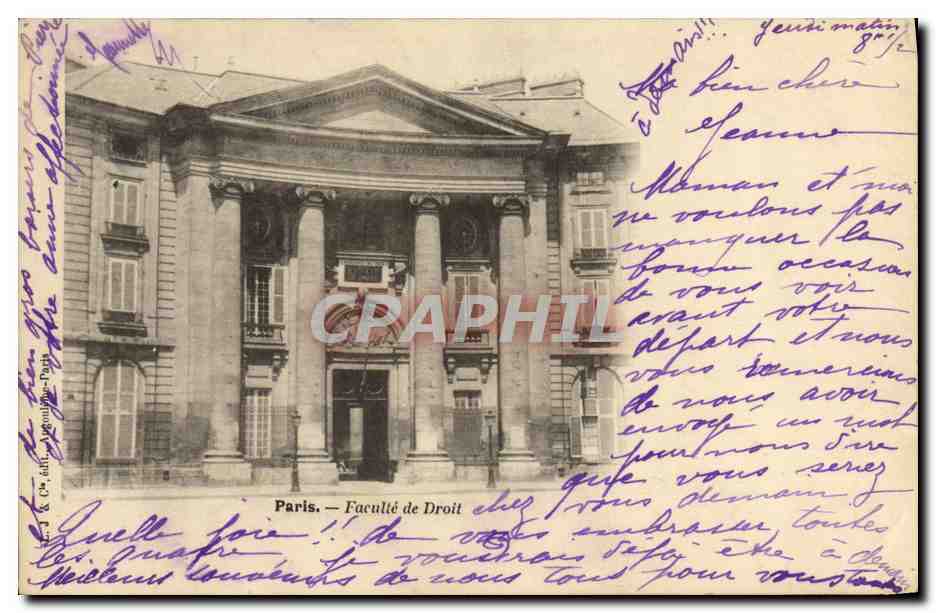 Jeudi matin
8h 1/2
Ma bien chère
Jeanne
Maman et moi
ne voulons pas
manquer la
bonne occasion
de vous voir
avant votre
départ et nous
vous remercions
de nous avoir
envoyé un mot
pour nous dire
que vous seriez
chez vous demain
Quelle joie !! de vous embrasser toutes
les quatre Je voudrais déjà être à demain
Meilleurs souvenirs de nous tous pour vous toutes
et de bien gros baisers de
et je votre amie affectionnée
à Paris!!!
Paris. — Faculté de Droit
L. J & Cie, édit., Angoulême-Paris
CPARAMA PHIL